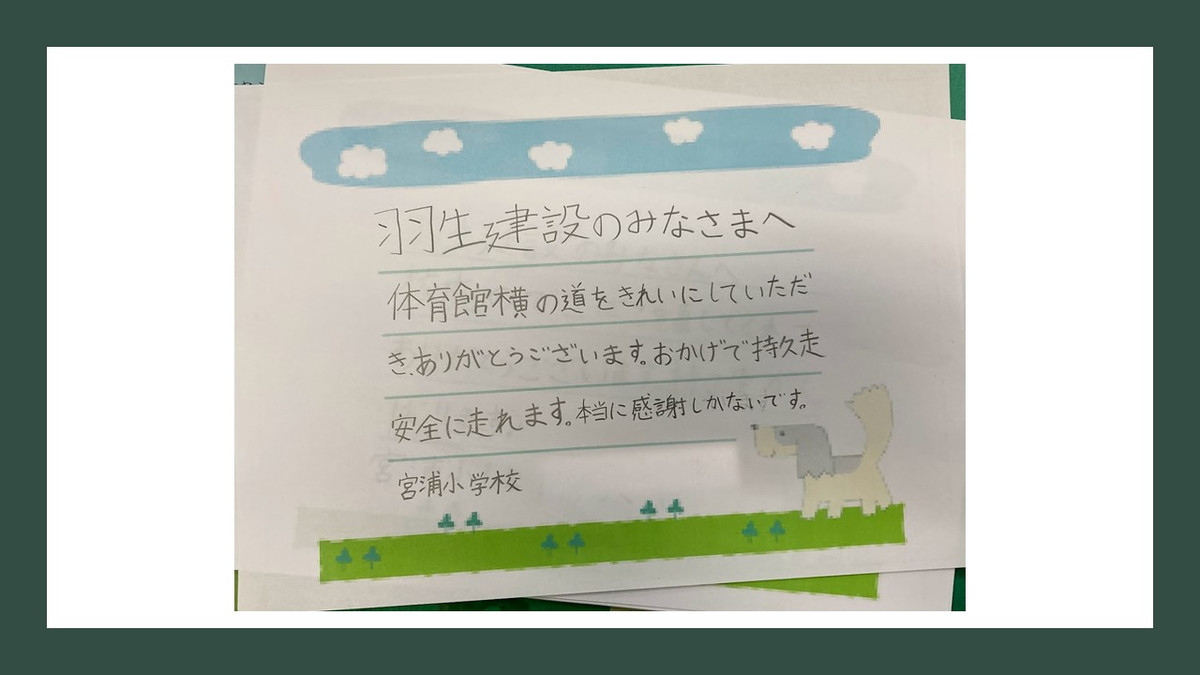 羽生建設のみなさまへ
体育館横の道をきれいにしていただ
き、ありがとうございます。おかげで持久走
安全に走れます。本当に感謝しかないです。
宮浦小学校